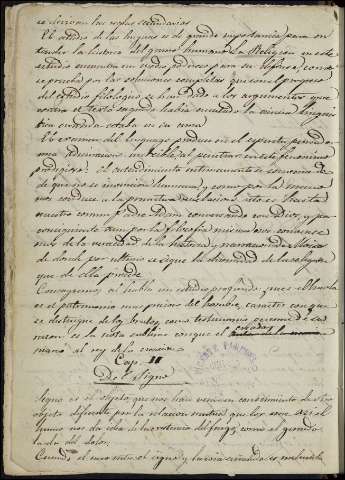 se derivan las reglas secundarias
El estudio de las lenguas es de grande importancia para en
tender la historia del genero humano. La Religion en este
estudio encuentra un verdadero apoyo para su defensa, como
se prueba por las soluciones completas que con el progreso
del estudio filologico, se han dado a los argumentos que
contra el texto sagrado habia suscitado la ciencia linguis
tica cuando estaba en su cuna
El examen del lenguage produce en el espiritu pensador
una admiracion indecible, al penetrar en este fenomeno
prodigioso. el entendimiento intimamente se convence
de que no es invencion humana, y como por la mano
nos conduce a la primitiva revelacion esto es hasta
nuestro comun padre Adam conversando con Dios, y por
consiguiente aun por la filosofia misma nos convence
mos de la verdad de la historia y narracion de Moises
de donde por ultimo se sigue la divinidad de la religion
que de ella pende
Consagremos al habla un estudio profundo, pues la habla
es el patrimonio mas precioso del hombre, caracter con que
se distingue de los brutos, como testimonio perenne de su
razon: es la nota sublime con que el
mano al rey de la creacion
Cap. II
Del Signo
Signo es el objeto que nos hace venir en conocimiento de otro
objeto diferente por la relacion mutua que los une. asi el
humo nos da idea de la existencia del fuego, como el gemido
la da del dolor.
Cuando el nexo entre el signo y la cosa significada es ineludible